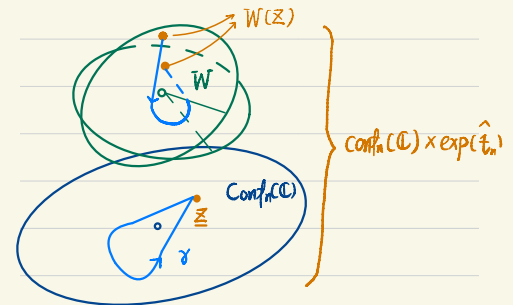 W(Z)
W
Conf_n(ℂ) × exp(t̂_n)
Conf_n(ℂ)
Z
γ